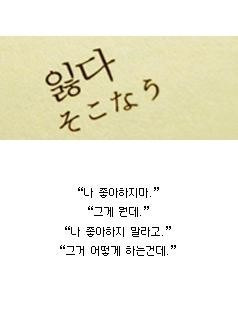 잃다
そこなう
“나 좋아하지마.”
“그게 뭔데.”
“나 좋아하지 말라고.”
“그거 어떻게 하는건데.”